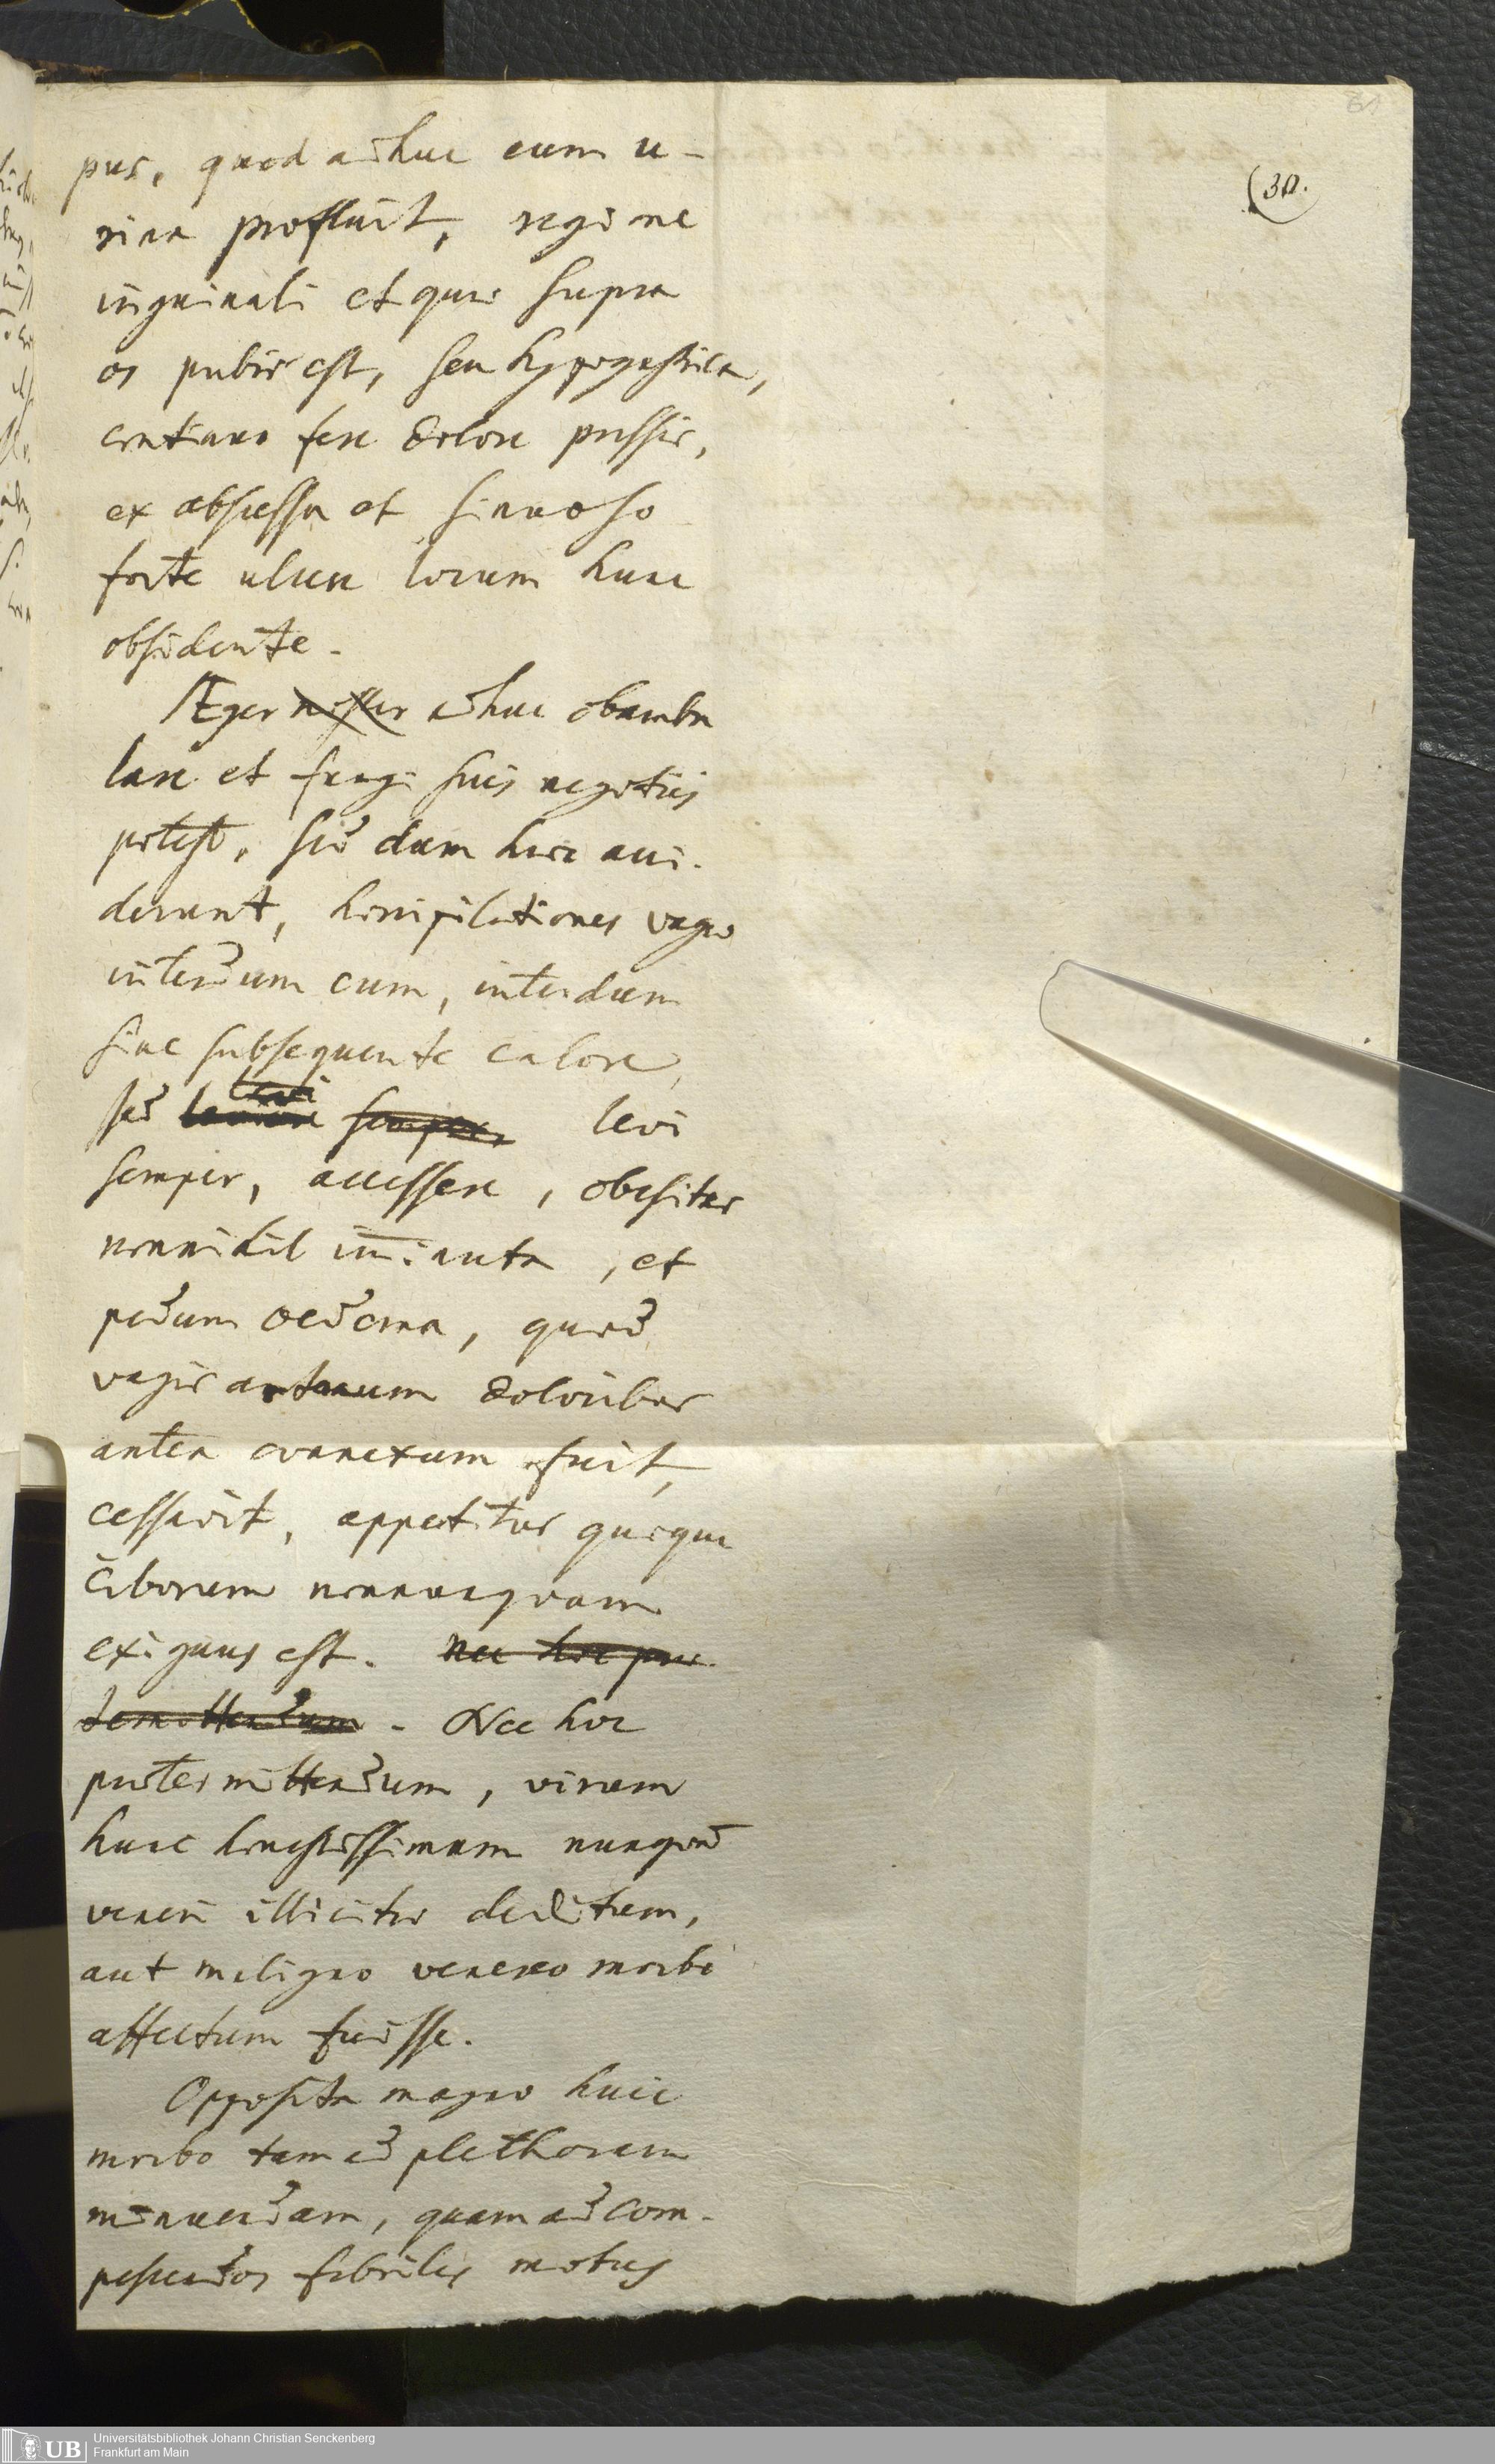 61
(30.
pus, quod adhuc cum u-
rina profluit, regione
inguinali et quae supra
os pubis est, seu hypogastrica,
continuo fere dolore pressis,
ex abscessu et sinuoso
forte ulcere locum hunc
obsidente.
Æger noster adhuc obambu
lare et frugi suis negotiis
potest, sed dum haec acci-
derunt, horripilationes vagae
interdum cum, interdum
sine subsequente calore,
levi
sed leviore semper, levi
semper, accessere, obesitas
nonnihil im̄inuta, et
pedum oedema, quod
vagis artuum doloribus
antea connexum fuit,
cessavit, appetitus quoque
ciborum nonnunquam
exiguus est. Nec hoc prae
termittendum. Nec hoc
praetermittendum, virum
hunc honestissimum nunquam
veneri illicitae deditum,
aut maligno venereo morbo
affectum fuisse.
Opposita magno huic
morbo tam ad plethoram
minuendam, quam ad com-
pescendos febriles motus
UB
Universitätsbibliothek Johann Christian Senckenberg
Frankfurt am Main